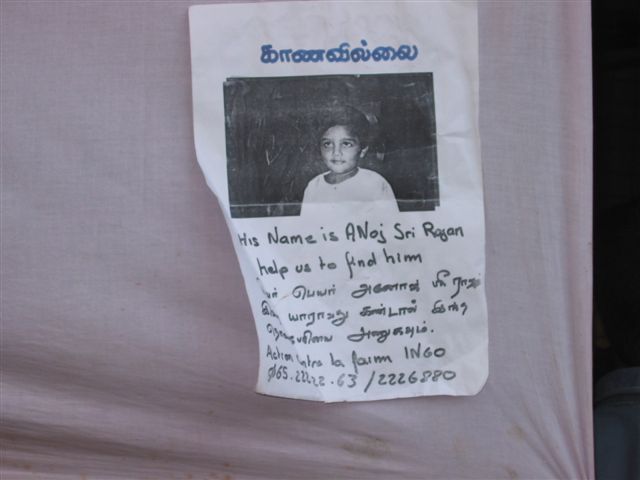 காணவில்லை
His Name is ANoj Sri Rajan
help us to find him
பெயர் அனோஜ் ஸ்ரீ ராஜன்
யாராவது கண்டால் இந்த
அணுகவும்.
Action Contre la faim INGO
065.22222.63 / 2226880